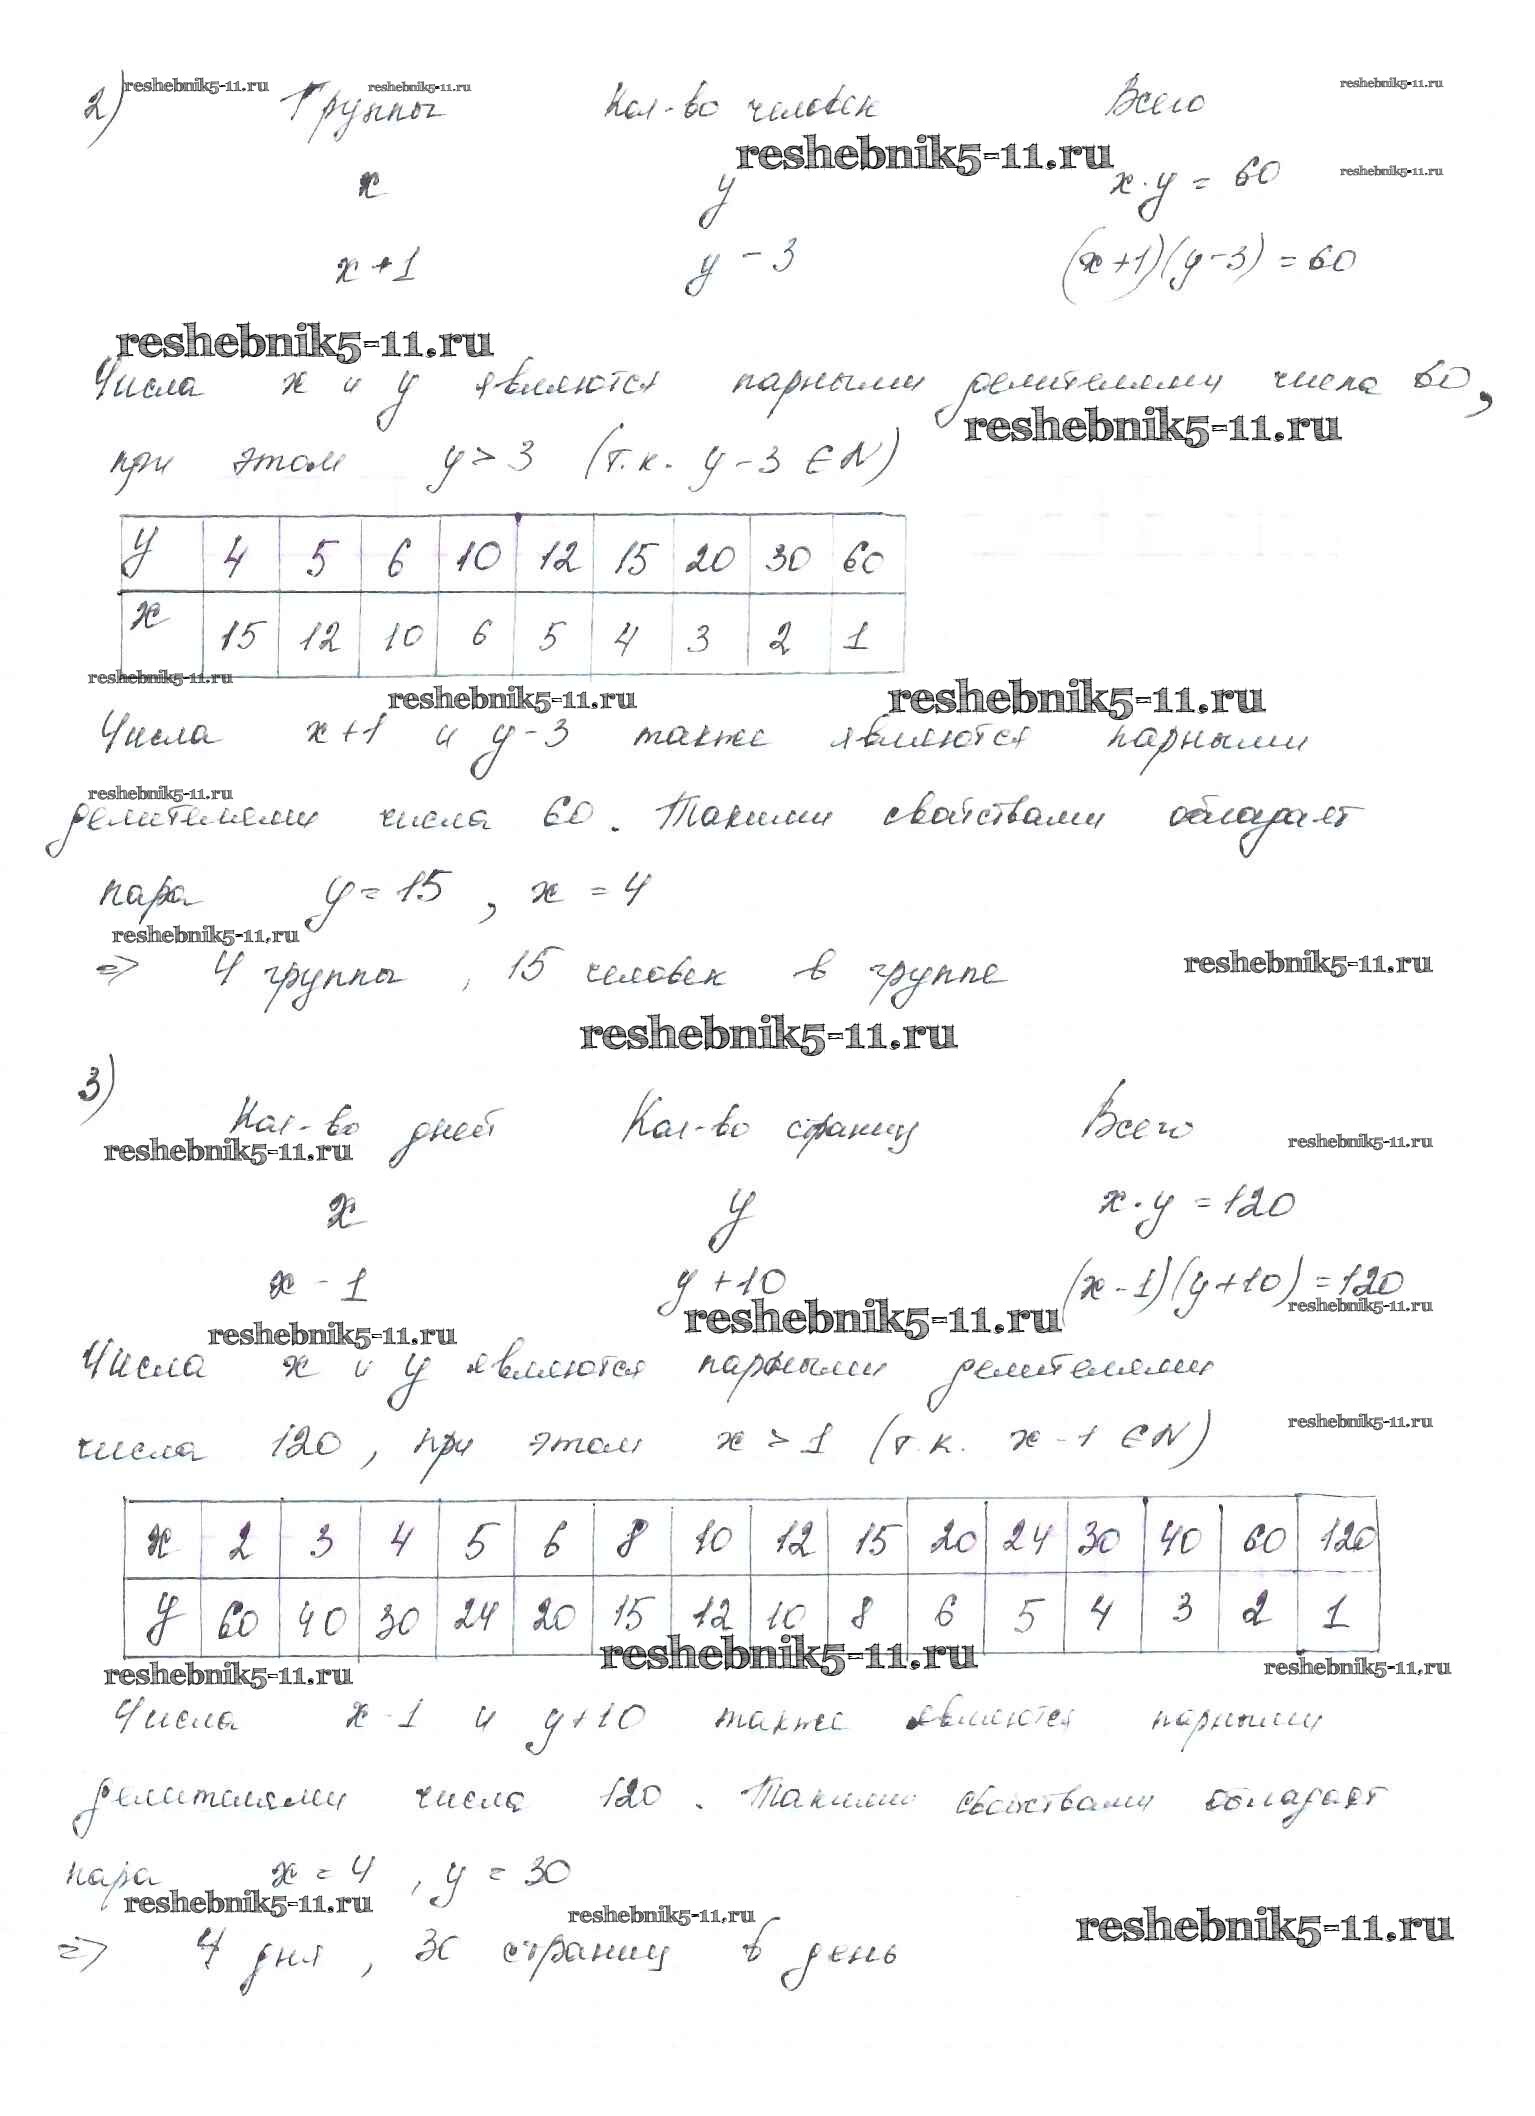 reshebnik5-11.ru reshebnik5-11.ru reshebnik5-11.ru
2) Группы Кол-во человек Всего
reshebnik5-11.ru reshebnik5-11.ru
x y x·y = 60
x+1 y-3 (x+1)(y-3) = 60
reshebnik5-11.ru
Числа x и y являются парными делителями числа 60,
reshebnik5-11.ru
при этом y > 3 (т.к. y-3 ∈ N)
y 4 5 6 10 12 15 20 30 60
x 15 12 10 6 5 4 3 2 1
reshebnik5-11.ru reshebnik5-11.ru reshebnik5-11.ru
Числа x+1 и y-3 также являются парными
reshebnik5-11.ru
делителями числа 60. Такими свойствами обладает
пара y = 15, x = 4
reshebnik5-11.ru
=> 4 группы, 15 человек в группе
reshebnik5-11.ru
reshebnik5-11.ru
3)
Кол-во дней Кол-во страниц Всего
reshebnik5-11.ru reshebnik5-11.ru
x y x·y = 120
x-1 y+10 (x-1)(y+10) = 120
reshebnik5-11.ru reshebnik5-11.ru
reshebnik5-11.ru
Числа x и y являются парными делителями
reshebnik5-11.ru
числа 120, при этом x > 1 (т.к. x-1 ∈ N)
x 2 3 4 5 6 8 10 12 15 20 24 30 40 60 120
y 60 40 30 24 20 15 12 10 8 6 5 4 3 2 1
reshebnik5-11.ru reshebnik5-11.ru reshebnik5-11.ru
Числа x-1 и y+10 также являются парными
делителями числа 120. Такими свойствами обладает
пара x = 4, y = 30
reshebnik5-11.ru reshebnik5-11.ru reshebnik5-11.ru
=> 4 дня, 30 страниц в день